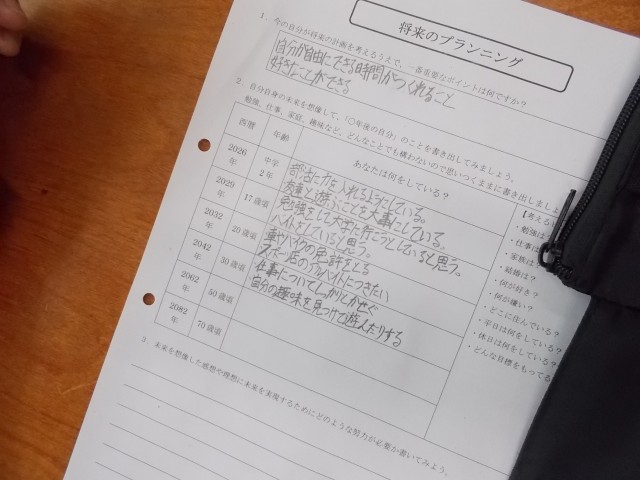 将来のプランニング
1．今の自分が将来の計画を考えるうえで、一番重要なポイントは何ですか？
自分が自由にできる時間がつくれること
好きなことができる
2．自分自身の未来を想像して、「〇年後の自分」のことを書き出してみましょう。
勉強、仕事、家庭、趣味など、どんなことでも構わないので思いつくままに書き出しましょ
西暦 年齢 あなたは何をしている？
2026年 中学2年 部活に力を入れるようにしている。
友達と遊ぶことを大事にしている。
2029年 17歳頃 勉強をして大学に行こうとしていると思う。
バイトをしていると思う。
2032年 20歳頃 車やバイクの免許をとる
のアルバイトにつきたい
2042年 30歳頃 仕事についてしっかりかせぐ
自分の趣味を見つけて遊んだりする
2062年 50歳頃
2082年 70歳頃
【考える
・勉強は
・仕事は
・家族は
・結婚は？
・何が好き？
・何が嫌い？
・どこに住んでいる？
・平日は何をしている？
・休日は何をしている？
・どんな目標をもってる
3．未来を想像した感想や理想に未来を実現するためにどのような努力が必要か書いてみよう。